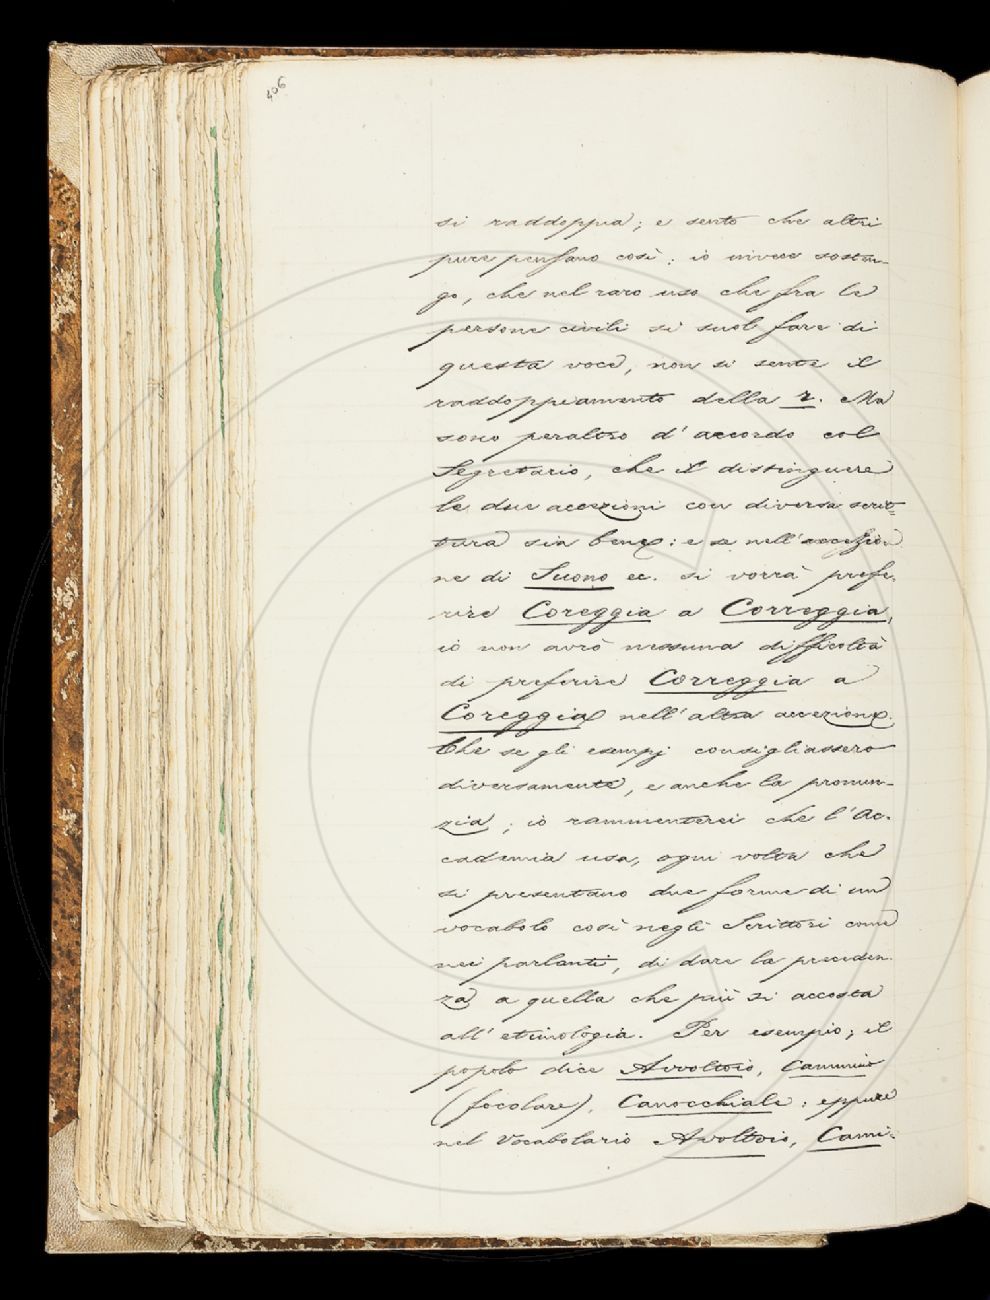 406
si raddoppia; e sento che altri
pure pensano così: io invece sosten-
go, che nel raro uso che fra le
persone civili si suol fare di
questa voce, non si sente il
raddoppiamento della r. Ma
sono peraltro d'accordo col
Segretario, che il distinguere
le due accezioni con diversa scrit=
tura sia bene: e se nell'accezio
ne di Suono ec. si vorrà prefe-
rire Coreggia a Correggia,
io non avrò nessuna difficoltà
di preferire Correggia a
Coreggia nell'altra accezione.
Che se gli esempj consigliassero
diversamente, e anche la pronun-
zia; io rammenterei che l'Ac-
cademia usa, ogni volta che
si presentano due forme di un
vocabolo così negli Scrittori come
nei parlanti, di dare la preceden-
za a quella che più si accosta
all'etimologia. Per esempio; il
popolo dice Avvoltoio, Cammino
(focolare), Canocchiale: eppure
nel Vocabolario Avoltoio, Cami-